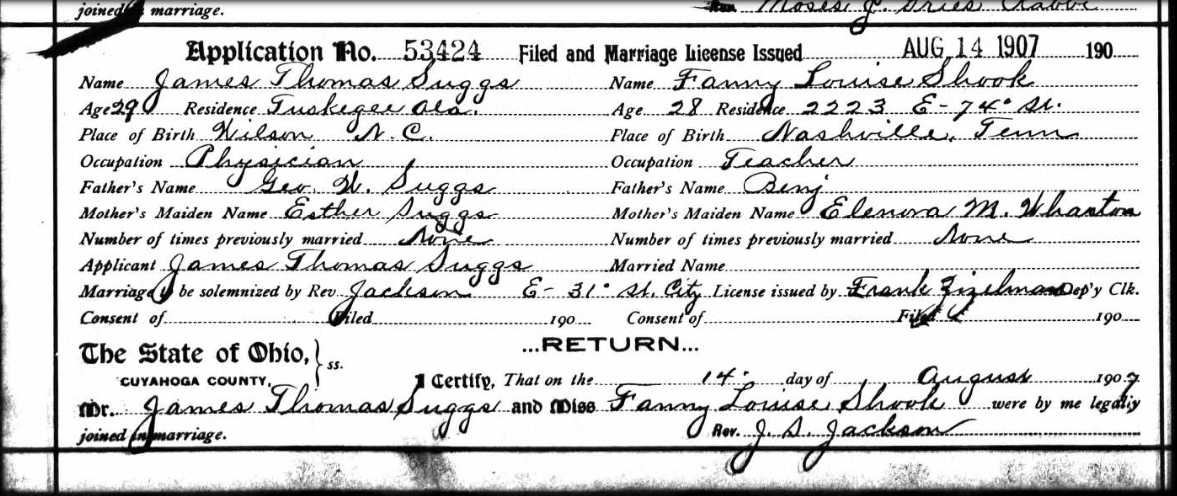 joined in marriage. Rev. Moses J. Gries Rabbi
Application No. 53424 Filed and Marriage License Issued AUG 14 1907 190
Name James Thomas Suggs Name Fanny Louise Shook
Age 29 Residence Tuskegee Ala. Age 28 Residence 2223 E- 74" St.
Place of Birth Wilson N.C. Place of Birth Nashville, Tenn
Occupation Physician Occupation Teacher
Father's Name Geo. W. Suggs Father's Name Benj
Mother's Maiden Name Esther Suggs Mother's Maiden Name Elenora M. Wharton
Number of times previously married None Number of times previously married None
Applicant James Thomas Suggs Married Name
Marriage to be solemnized by Rev. Jackson E- 31" St. City License issued by Frank Zizelman Dep'y Clk.
Consent of Filed 190 Consent of Filed 190
The State of Ohio, } ss. ...RETURN...
CUYAHOGA COUNTY, I Certify, That on the 14" day of August 1907
Mr. James Thomas Suggs and Miss Fanny Louise Shook were by me legally
joined in marriage. Rev. J. S. Jackson